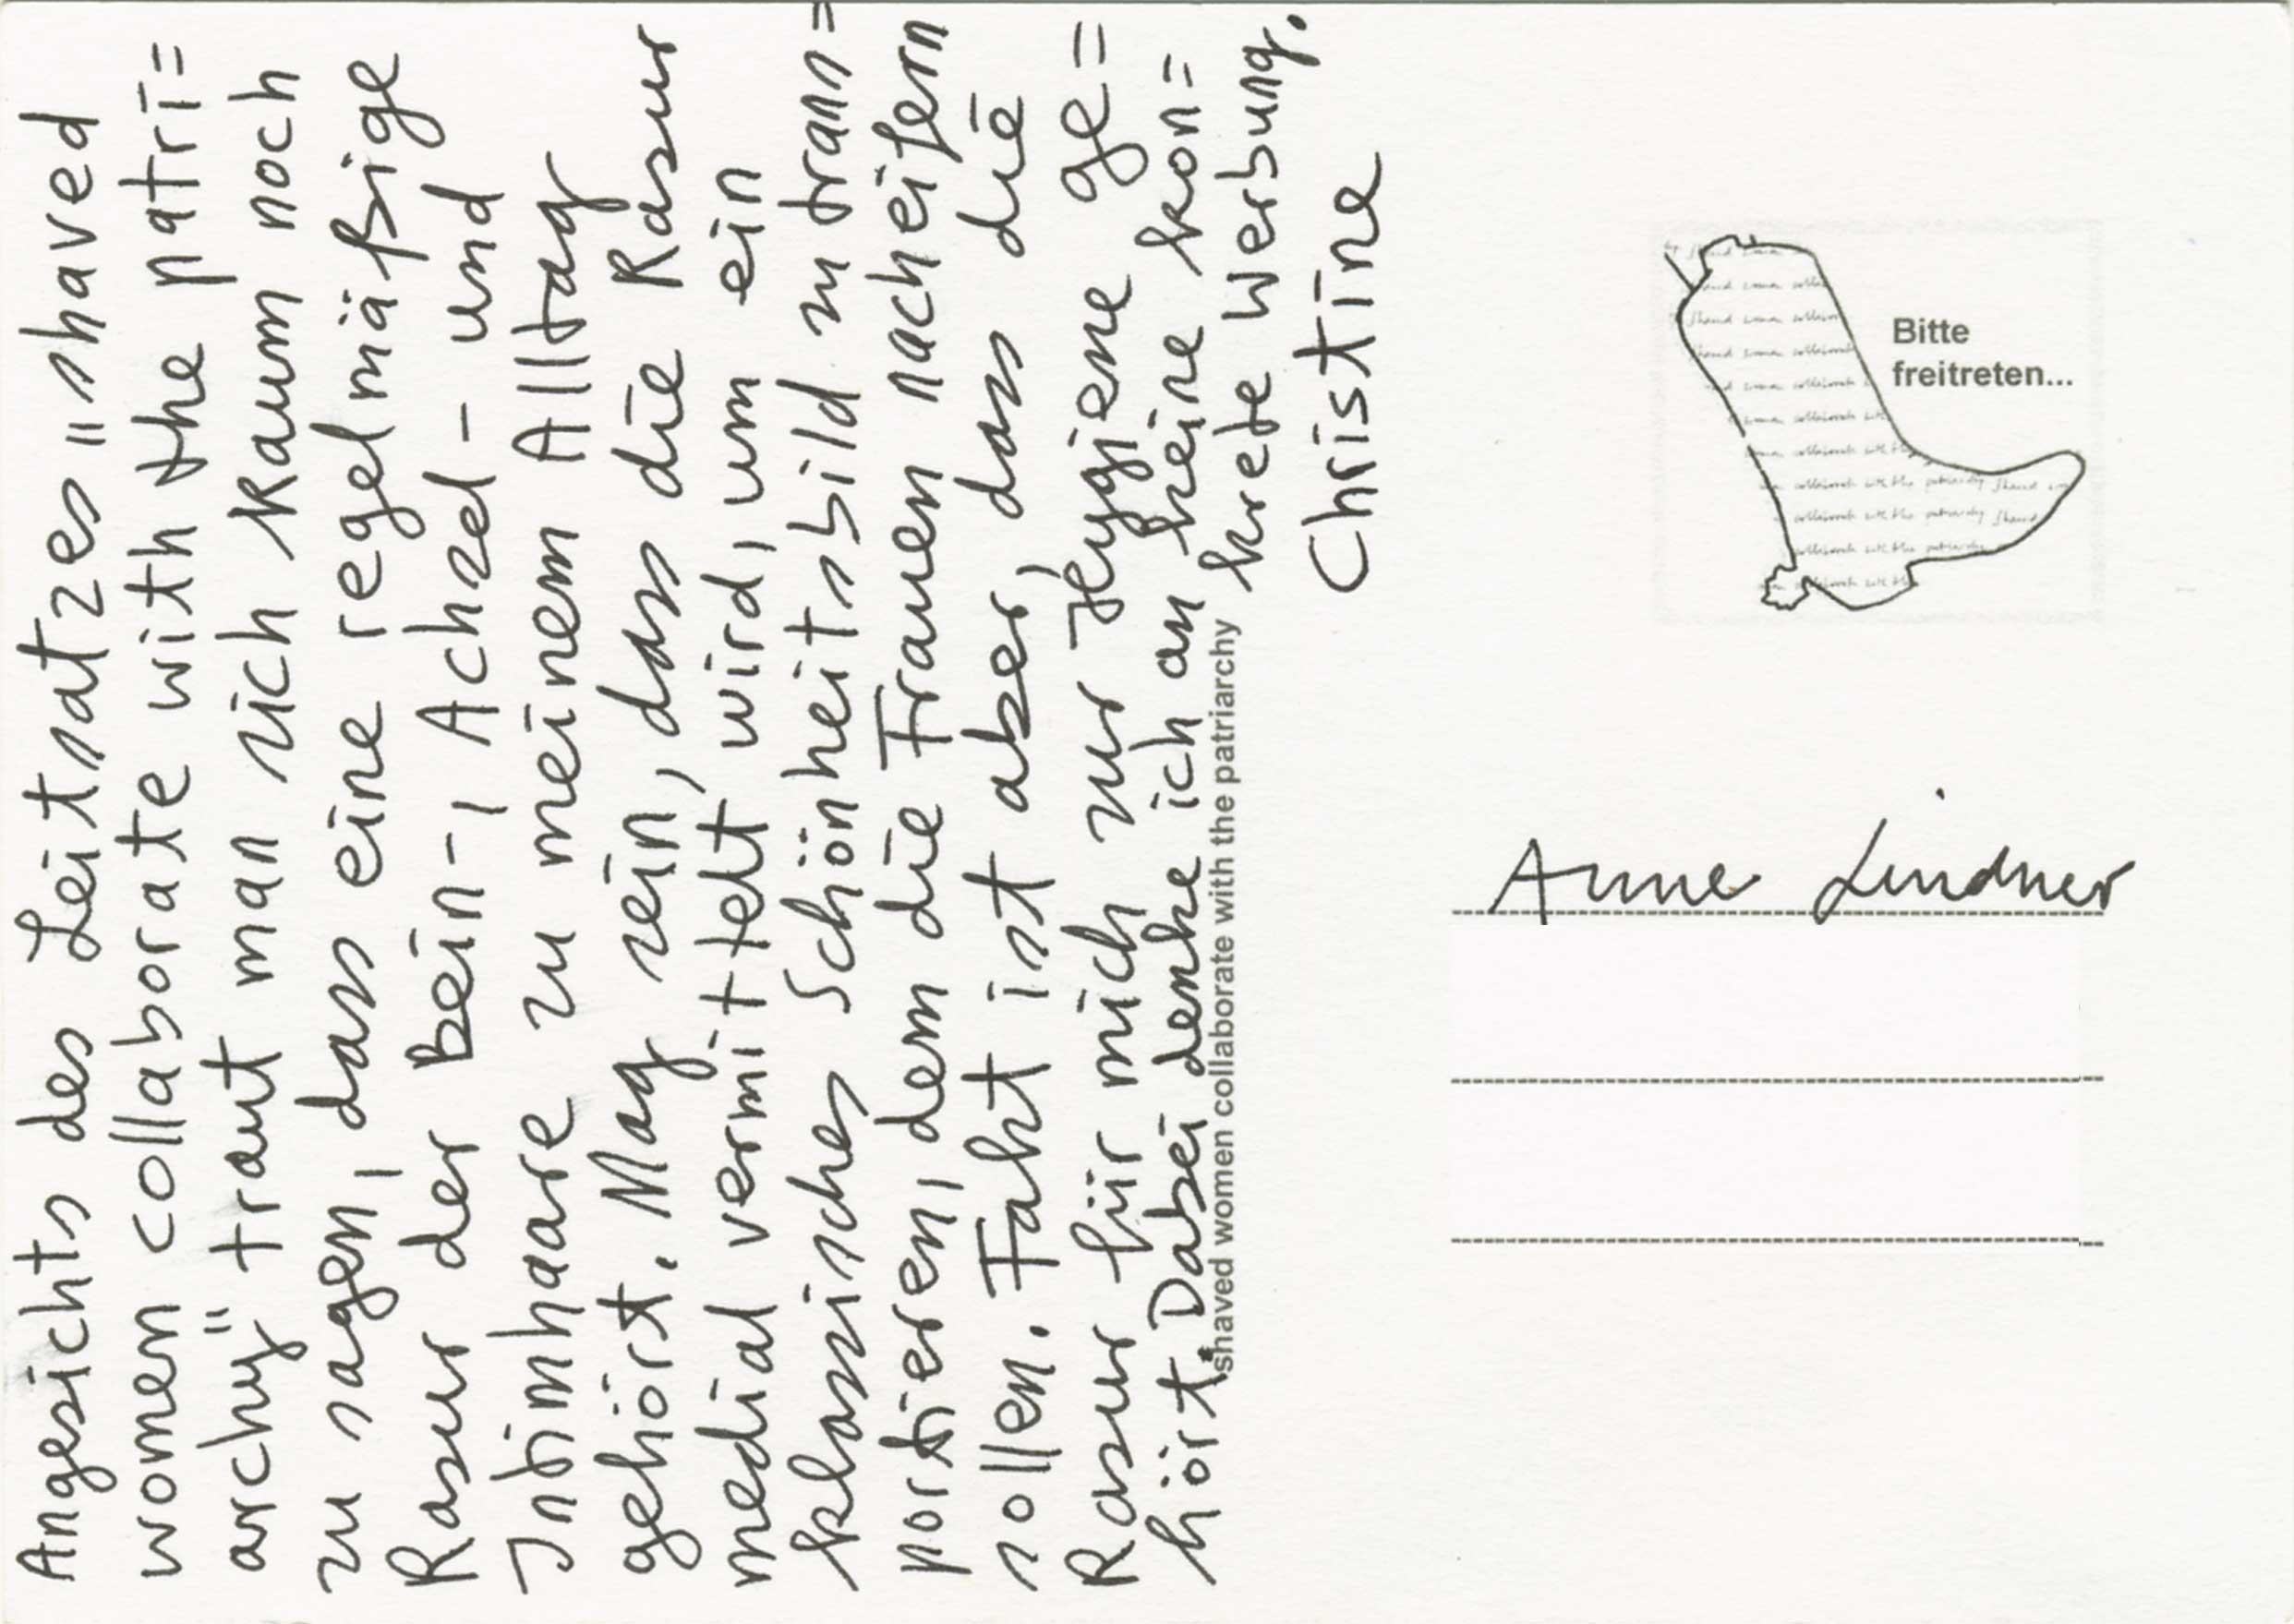 Angesichts des Leitsatzes "shaved
women collaborate with the patri=
archy" traut man sich kaum noch
zu sagen, dass eine regelmäßige
Rasur der Bein-, Achsel- und
Intimhaare zu meinem Alltag
gehört. Mag sein, dass die Rasur
medial vermittelt wird, um ein
klassisches Schönheitsbild zu tran=
portieren, dem die Frauen nacheifern
sollen. Fakt ist aber, dass die
Rasur für mich zur Hygiene ge=
hört. Dabei denke ich an keine kon=
krete Werbung.
Christine
shaved women collaborate with the patriarchy
Bitte
freitreten...
Anne Lindner